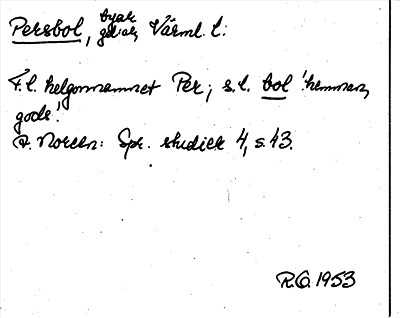 Persbol, byar, gårdar, Värml. l:
F.l. helgonnamnet Per; s.l. bol 'hemman,
gods'.
A. Noreen: Spr. studier 4, s. 43.
R.O. 1953